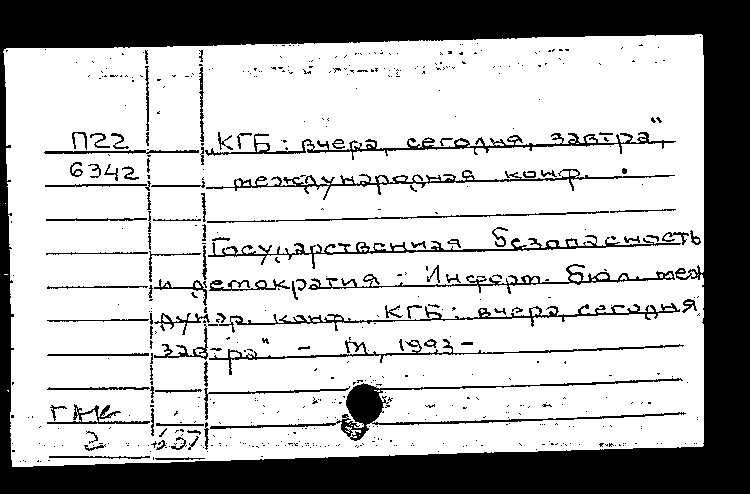 П22
6342
„КГБ: вчера, сегодня, завтра",
международная конф.
Государственная безопасность
и демократия: Информ. бюл. меж
дунар. конф. КГБ: вчера, сегодня
завтра". - М., 1993 -
2 637